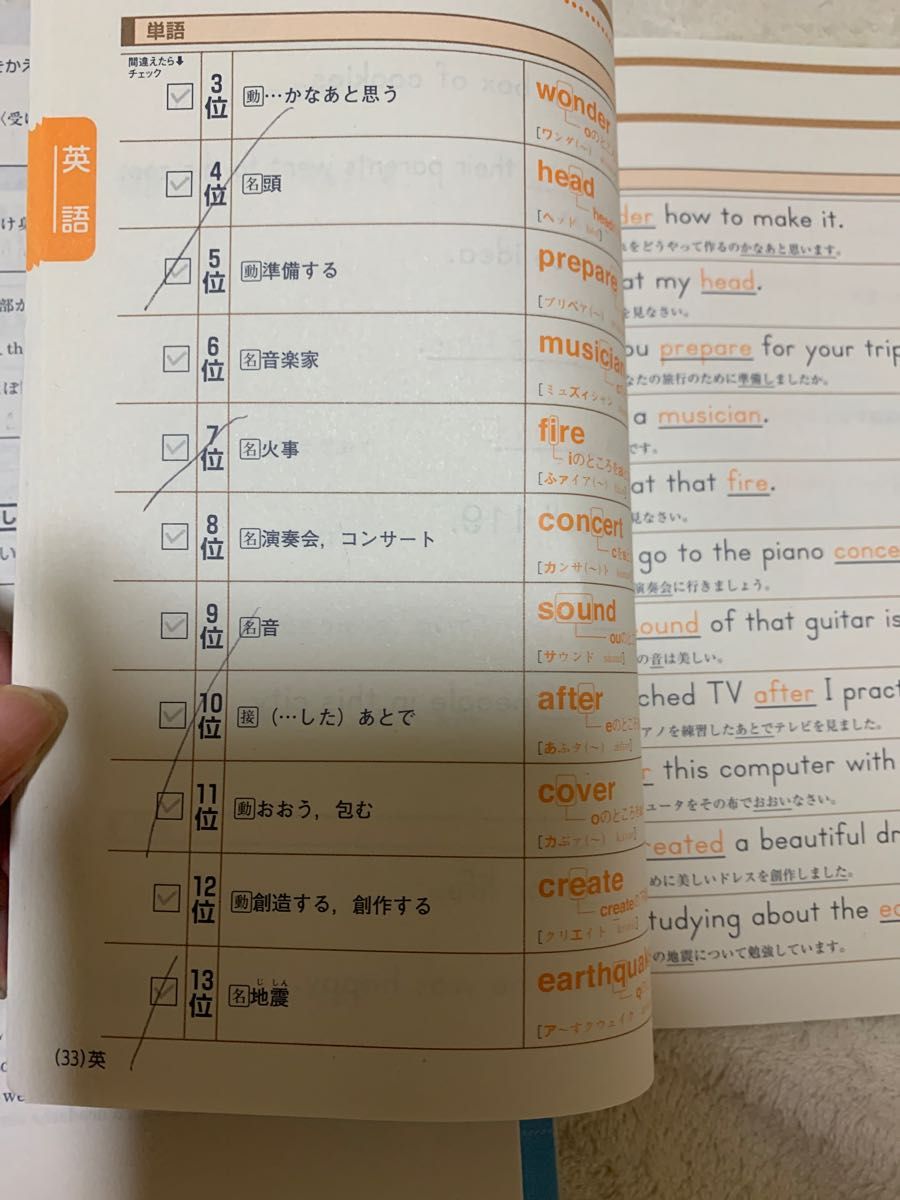 単語
間違えたら⬇
チェック
英語
3位
動…かなあと思う
wonder
oのとこ
[ワンダ(〜)
4位
名頭
head
hea
[ヘッド
5位
動準備する
prepare
[プリペア(〜)
6位
名音楽家
musician
[ミュズィシャン
7位
名火事
fire
iのところを
[ふアイア(〜)
8位
名演奏会，コンサート
concert
cを
[カンサ(〜)ト
9位
名音
sound
ouの
[サウンド
10位
接（…した）あとで
after
eのところ
[あふタ(〜)
11位
動おおう，包む
cover
oのところを
[カぶァ(〜)
12位
動創造する，創作する
create
create
[クリエイト
13位
名地震
じしん
earthqua
q
[ア〜すクウェイク
(33)英
der how to make it.
をどうやって作るのかなあと思います。
at my head.
を見なさい。
ou prepare for your trip
なたの旅行のために準備しましたか。
a musician.
です。
at that fire.
見なさい。
go to the piano conce
演奏会に行きましょう。
ound of that guitar is
の音は美しい。
ched TV after I pract
アノを練習したあとでテレビを見ました。
r this computer with
ュータをその布でおおいなさい。
reated a beautiful dr
めに美しいドレスを創作しました。
tudying about the ea
の地震について勉強しています。